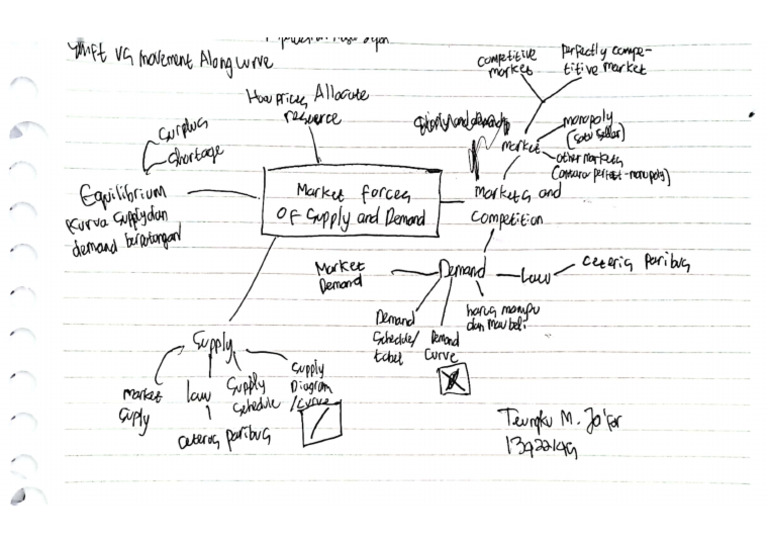 shift vs movement Along curve
How prices Allocate
resource
competitive
market
perfectly compe-
titive market
Supply and demand
market
monopoly
(satu seller)
other markets
(antara perfect-monopoly)
Surplus
shortage
Equilibrium
Kurva supply dan
demand berpotongan
Market forces
OF Supply and Demand
Markets and
Competition
Market
Demand
Demand
Law
ceteris paribus
harus mampu
dan mau beli
Demand
Schedule/
tabel
Demand
Curve
Supply
market
suply
law
ceteris paribus
Supply
schedule
Supply
Diagram
/curve
Teungku M. Ja'far